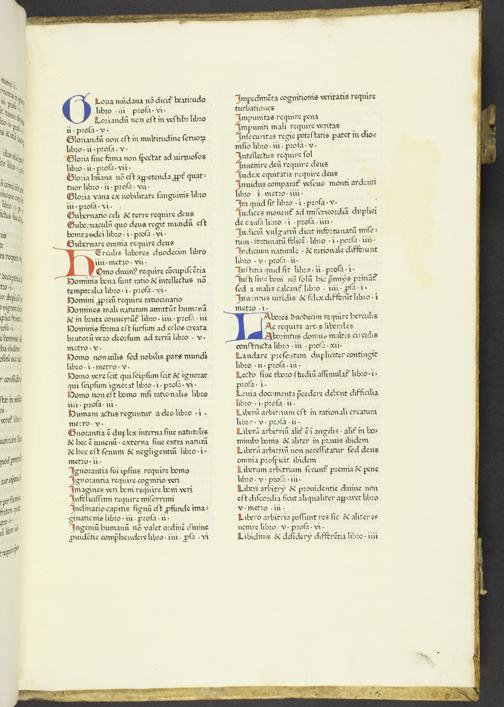 GLoria mūdana nō dicit̄ beatitudo
libro · iii · prosa · vi ·
Gloriandū non est in vestib⁹ libro
ii · prosa · v ·
Gloriandū non est in multitudine seruoꝝ
libro · ii · prosa · v ·
Gloria siue fama non spectat ad uirtuosos
libro · ii · prosa · vii ·
Gloria humana nō est appetenda
libro · ii · prosa · vii ·
Gloria vana ex nobilitate sanguinis libro
iii · prosa · vi ·
Gubernatio celi & terre require deus
Gubernaculū quo deus regit mundū est
libro · iii · prosa · xii
Gubernare omnia require deus
HErculis labores duodecim libro
iiii · metro · vii ·
Homo require
Hominis bona sunt ratio & intellectus nō
temporalia libro · i · prosa · v ·
Homini require ratiocinatio
Homines mali naturam amittūt humanā
& in bruta conuertūt̄ libro · iiii · prosa · iii
Hominis forma est sursum ad celos creata
brutorū vero deorsum ad terrā libro · v ·
metro · v ·
Homo non uilis sed nobilis pars mundi
libro · i · metro · v ·
Homo vere scit qui seipsum scit & ignorat
qui seipsum ignorat libro · i · prosa · vi ·
Homo non est homo nisi rationalis libro
iiii · prosa · iii ·
Humani actus reguntur a deo libro · i ·
metro · v ·
Ignorantia ē duplex interna siue naturalis
& hec ē inuenti · externa siue extra naturā
& hec est senum & negligentiū libro · i ·
metro · ii ·
Ignorantia sui ipsius require homo
Ignorantia require cognitio veri
Imagines veri boni require boni veri
Infelicissimi require miserrimi
Inclinatio capitis signū est profunde ima⸗
ginationis libro · iii · prosa · ii ·
Ingeniū humanū nō valet ordinē diuine
prouidētie comprehendere libro · iiii · prosa · vi
Impedimēta cognitionis veritatis require
turbationes
Impunitas require pena
Impuniti mali require veritas
Insecuritas regie potestatis patet in dio⸗
nisio libro · iii · prosa · v ·
Intellectus require sol
Inuenire deū require deus
Iudex equitatis require deus
Inuidus comparat̄ vesuuo monti ardenti
libro · i · metro · iiii ·
Ira quid sit libro · i · prosa · v ·
Iudices mouent̄ ad misericordiā duplici
de causa libro · i · prosa · iiii ·
Iudiciū vulgariū dicit infortunatū mise⸗
rum · fortunatū felicē · libro · i · prosa · iiii ·
Iudicium naturale · & rationale differunt
libro · v · prosa · ii ·
Iustitia quid sit libro · ii · prosa · i ·
Iusti siue boni nō solū hic
sed a malis calcant̄ libro · iiii · prosa · i ·
Iuuentus uiridis & felix differūt libro · i
metro · i ·
LAbores duodecim require herculis
Lac require artis liberales
Laborintus domus multis circulis
constructa libro · iii · prosa · xii ·
Laudare presentem dupliciter contingit
libro · ii · prosa · iii ·
Lecto siue thoro studiū assimulat̄ libro · i ·
prosa · i ·
Leuia documenta precedere debent difficilia
libro · i · prosa · ii ·
Liberū arbitrium est in rationali creatura
libro · v · prosa · ii ·
Liberū arbitriū alit̄ ē ī angelis · alit̄ in ho⸗
minibus bonis & aliter in prauis ibidem
Liberū arbitriū non necessitatur sed deus
omnia prospicit ibidem
Liberum arbitrium secunt̄ premia & pene
libro · v · prosa · iii ·
Liberi arbitrij & prouidentie diuine non
est discordia sicut aliqualiter apparet libro
v · metro · iii ·
Libero arbitrio possunt res sic & aliter e⸗
uenire libro · v · prosa · vi ·
Libidinis & desiderij differētia libro · iiii